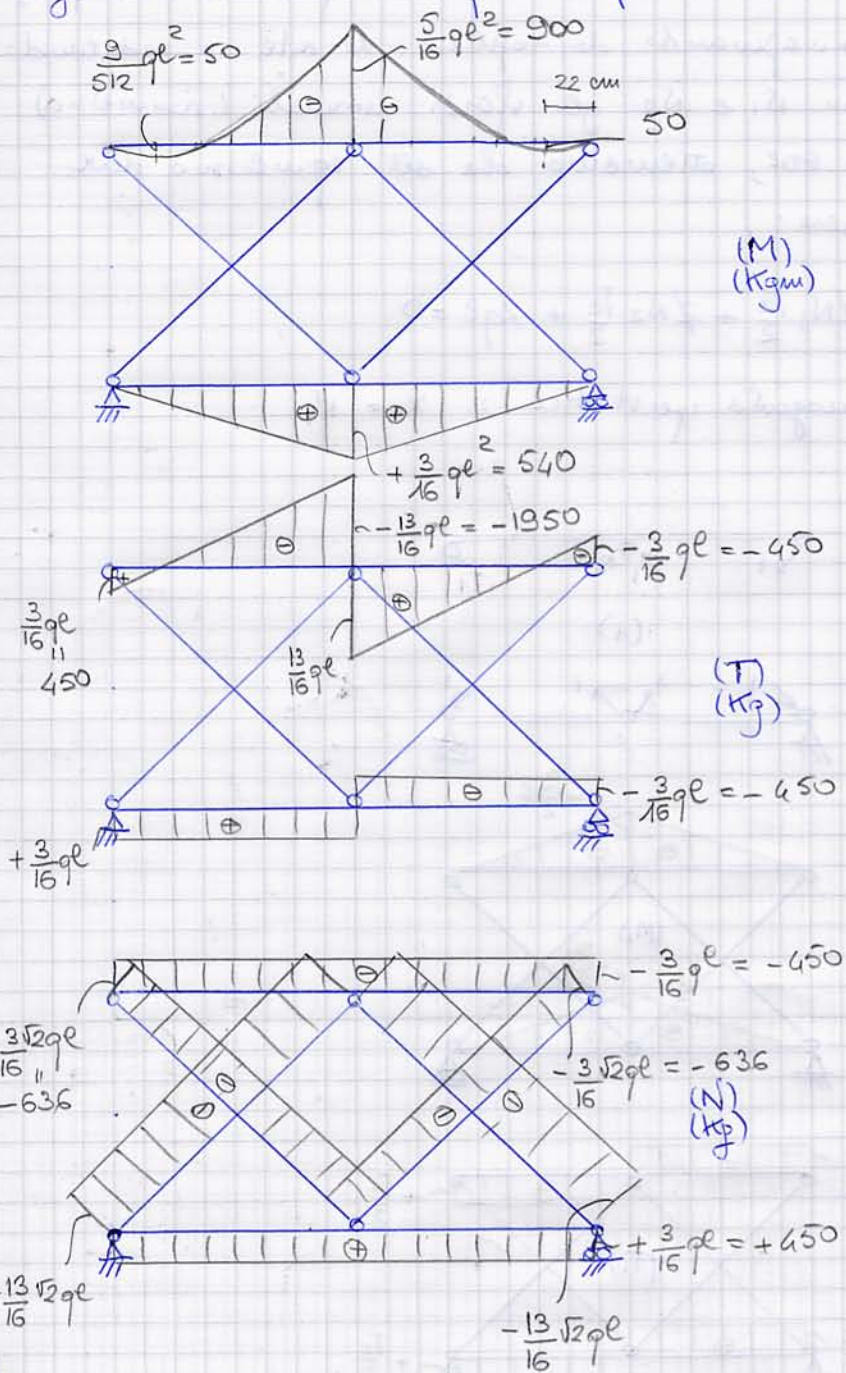 9/512 ql² = 50
5/16 ql² = 900
22 cm
50
⊖ ⊖
(M)
(Kgm)
⊕ ⊕
+ 3/16 ql² = 540
- 13/16 ql = -1950
⊖
⊖ - 3/16 ql = -450
+
⊕
3/16 ql
"
450
13/16 ql
(T)
(Kg)
⊖ - 3/16 ql = -450
⊕
+ 3/16 ql
⊖ - 3/16 ql = -450
3√2/16 ql
"
-636
⊖ ⊖ ⊖ ⊖
- 3/16 √2 ql = -636
(N)
(Kg)
⊕ + 3/16 ql = +450
- 13/16 √2 ql
- 13/16 √2 ql